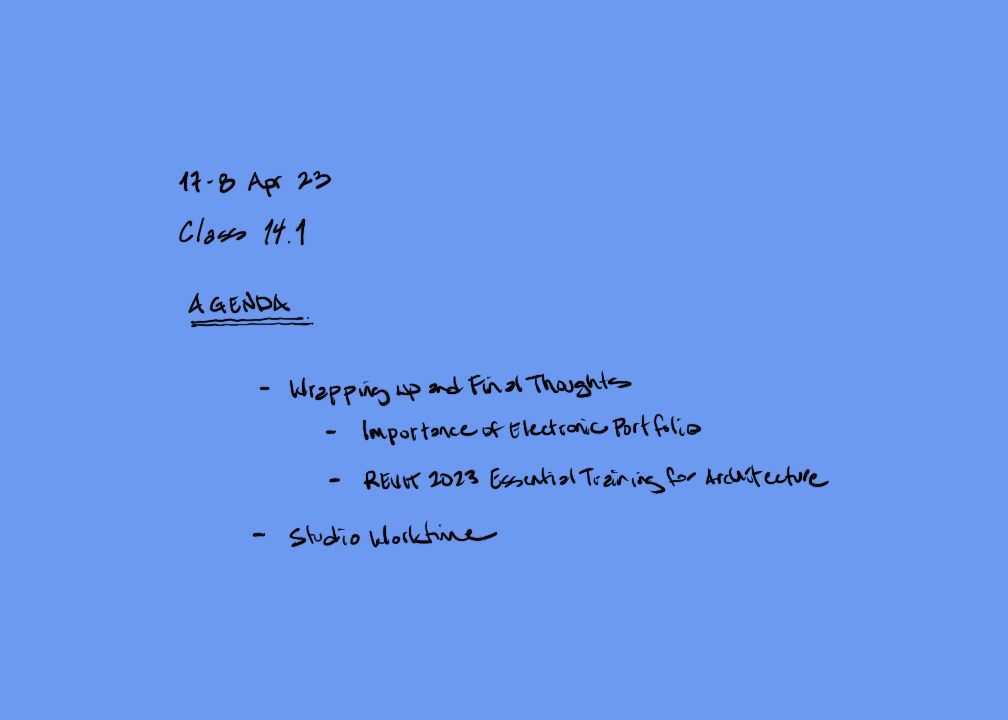 17-8 Apr 23
Class 14.1
AGENDA
- Wrapping up and Final Thoughts
- Importance of Electronic Portfolio
- REVIT 2023 Essential Training for Architecture
- Studio Worktime